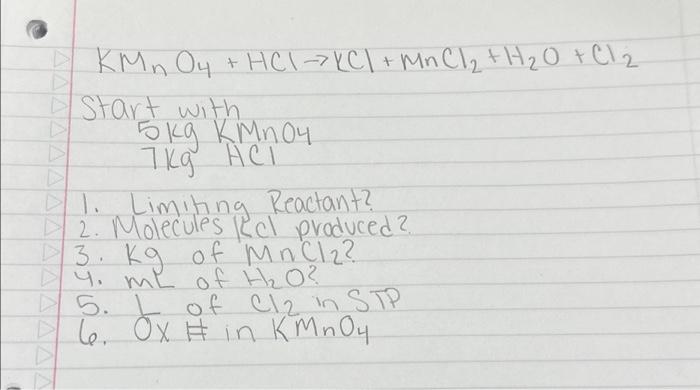 KMnO4 + HCl → KCl + MnCl2 + H2O + Cl2
Start with
5kg KMnO4
7kg HCl
1. Limiting Reactant?
2. Molecules Kcl produced?
3. Kg of MnCl2?
4. mL of H2O?
5. L of Cl2 in STP
6. Ox # in KMnO4